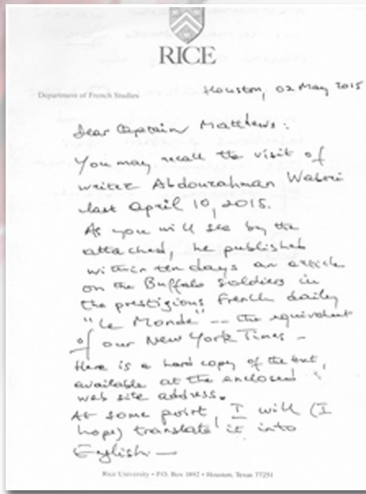 RICE
Department of French Studies
Houston, 02 May 2015
Dear Captain Matthews:
You may recall the visit of
writer Abdourahman Waberi
last April 10, 2015.
As you will see by the
attached, he published
within ten days an article
on the Buffalo Soldiers in
the prestigious French daily
"Le Monde" -- the equivalent
of our New York Times -
Here is a hard copy of the text,
available at the enclosed
web site address.
At some point, I will (I
hope) translate it into
English —
Rice University • P.O. Box 1892 • Houston, Texas 77251